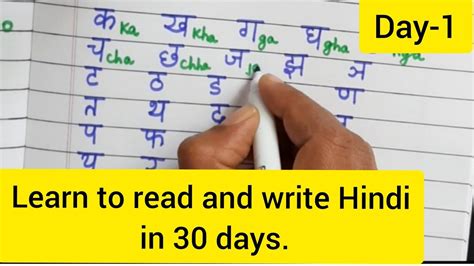 Day-1
क Ka ख Kha ग ga घ gha
च cha छ chha ज झ ञ
ट ठ ड ण
त थ द
प फ
य
Learn to read and write Hindi
in 30 days.